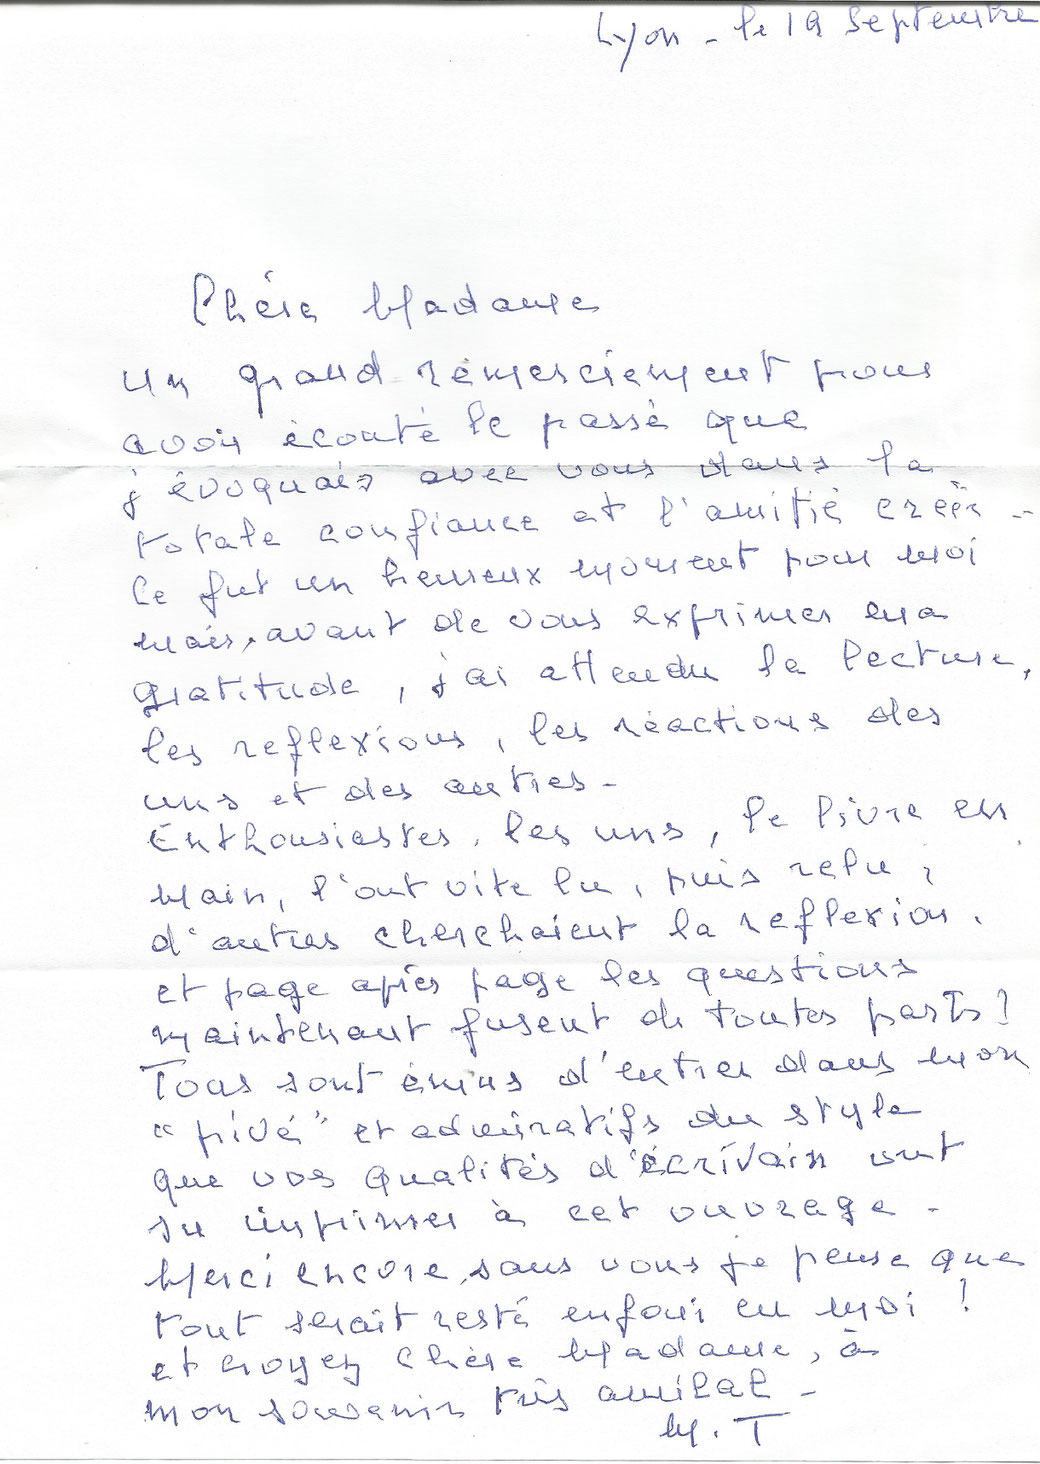 Lyon - le 19 Septembre
Chère Madame
un grand remerciement pour
avoir écouté le passé que
j'évoquais avec vous dans la
totale confiance et l'amitié créée -
Ce fut un heureux moment pour moi
mais, avant de vous exprimer ma
gratitude, j'ai attendu la lecture,
les reflexions, les réactions des
uns et des autres -
Enthousiastes, les uns, le livre en
main, l'ont vite lu, puis relu ;
d'autres cherchaient la reflexion,
et page après page les questions
maintenant fusent de toutes parts !
Tous sont émus d'entrer dans mon
"privé" et admiratifs du style
que vos qualités d'écrivain ont
su imprimer à cet ouvrage -
Merci encore, sans vous je pense que
tout serait resté enfoui en moi !
et croyez chère Madame, à
mon souvenir très amical -
M. T